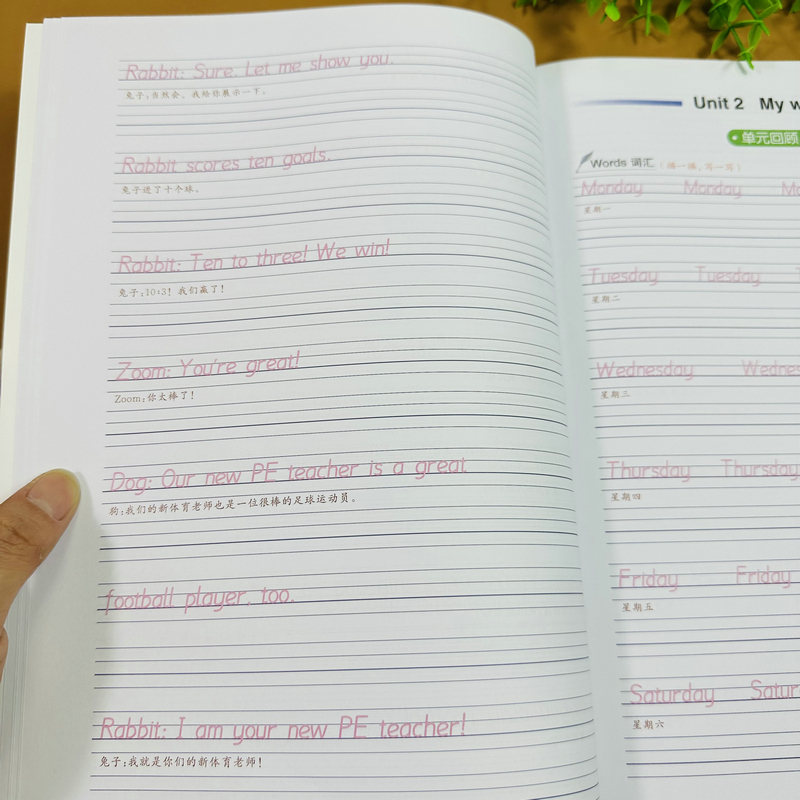 Rabbit: Sure. Let me show you.
兔子:当然会。我给你展示一下。
Rabbit scores ten goals.
兔子进了十个球。
Rabbit: Ten to three! We win!
兔子:10:3! 我们赢了!
Zoom: You're great!
Zoom:你太棒了!
Dog: Our new PE teacher is a great
狗:我们的新体育老师也是一位很棒的足球运动员。
football player, too.
Rabbit: I am your new PE teacher!
兔子:我就是你们的新体育老师!
Unit 2 My w
单元回顾
Words 词汇(描一描,写一写)
Monday Monday Mo
星期一
Tuesday Tuesday
星期二
Wednesday Wednes
星期三
Thursday Thursday
星期四
Friday Friday
星期五
Saturday Satur
星期六